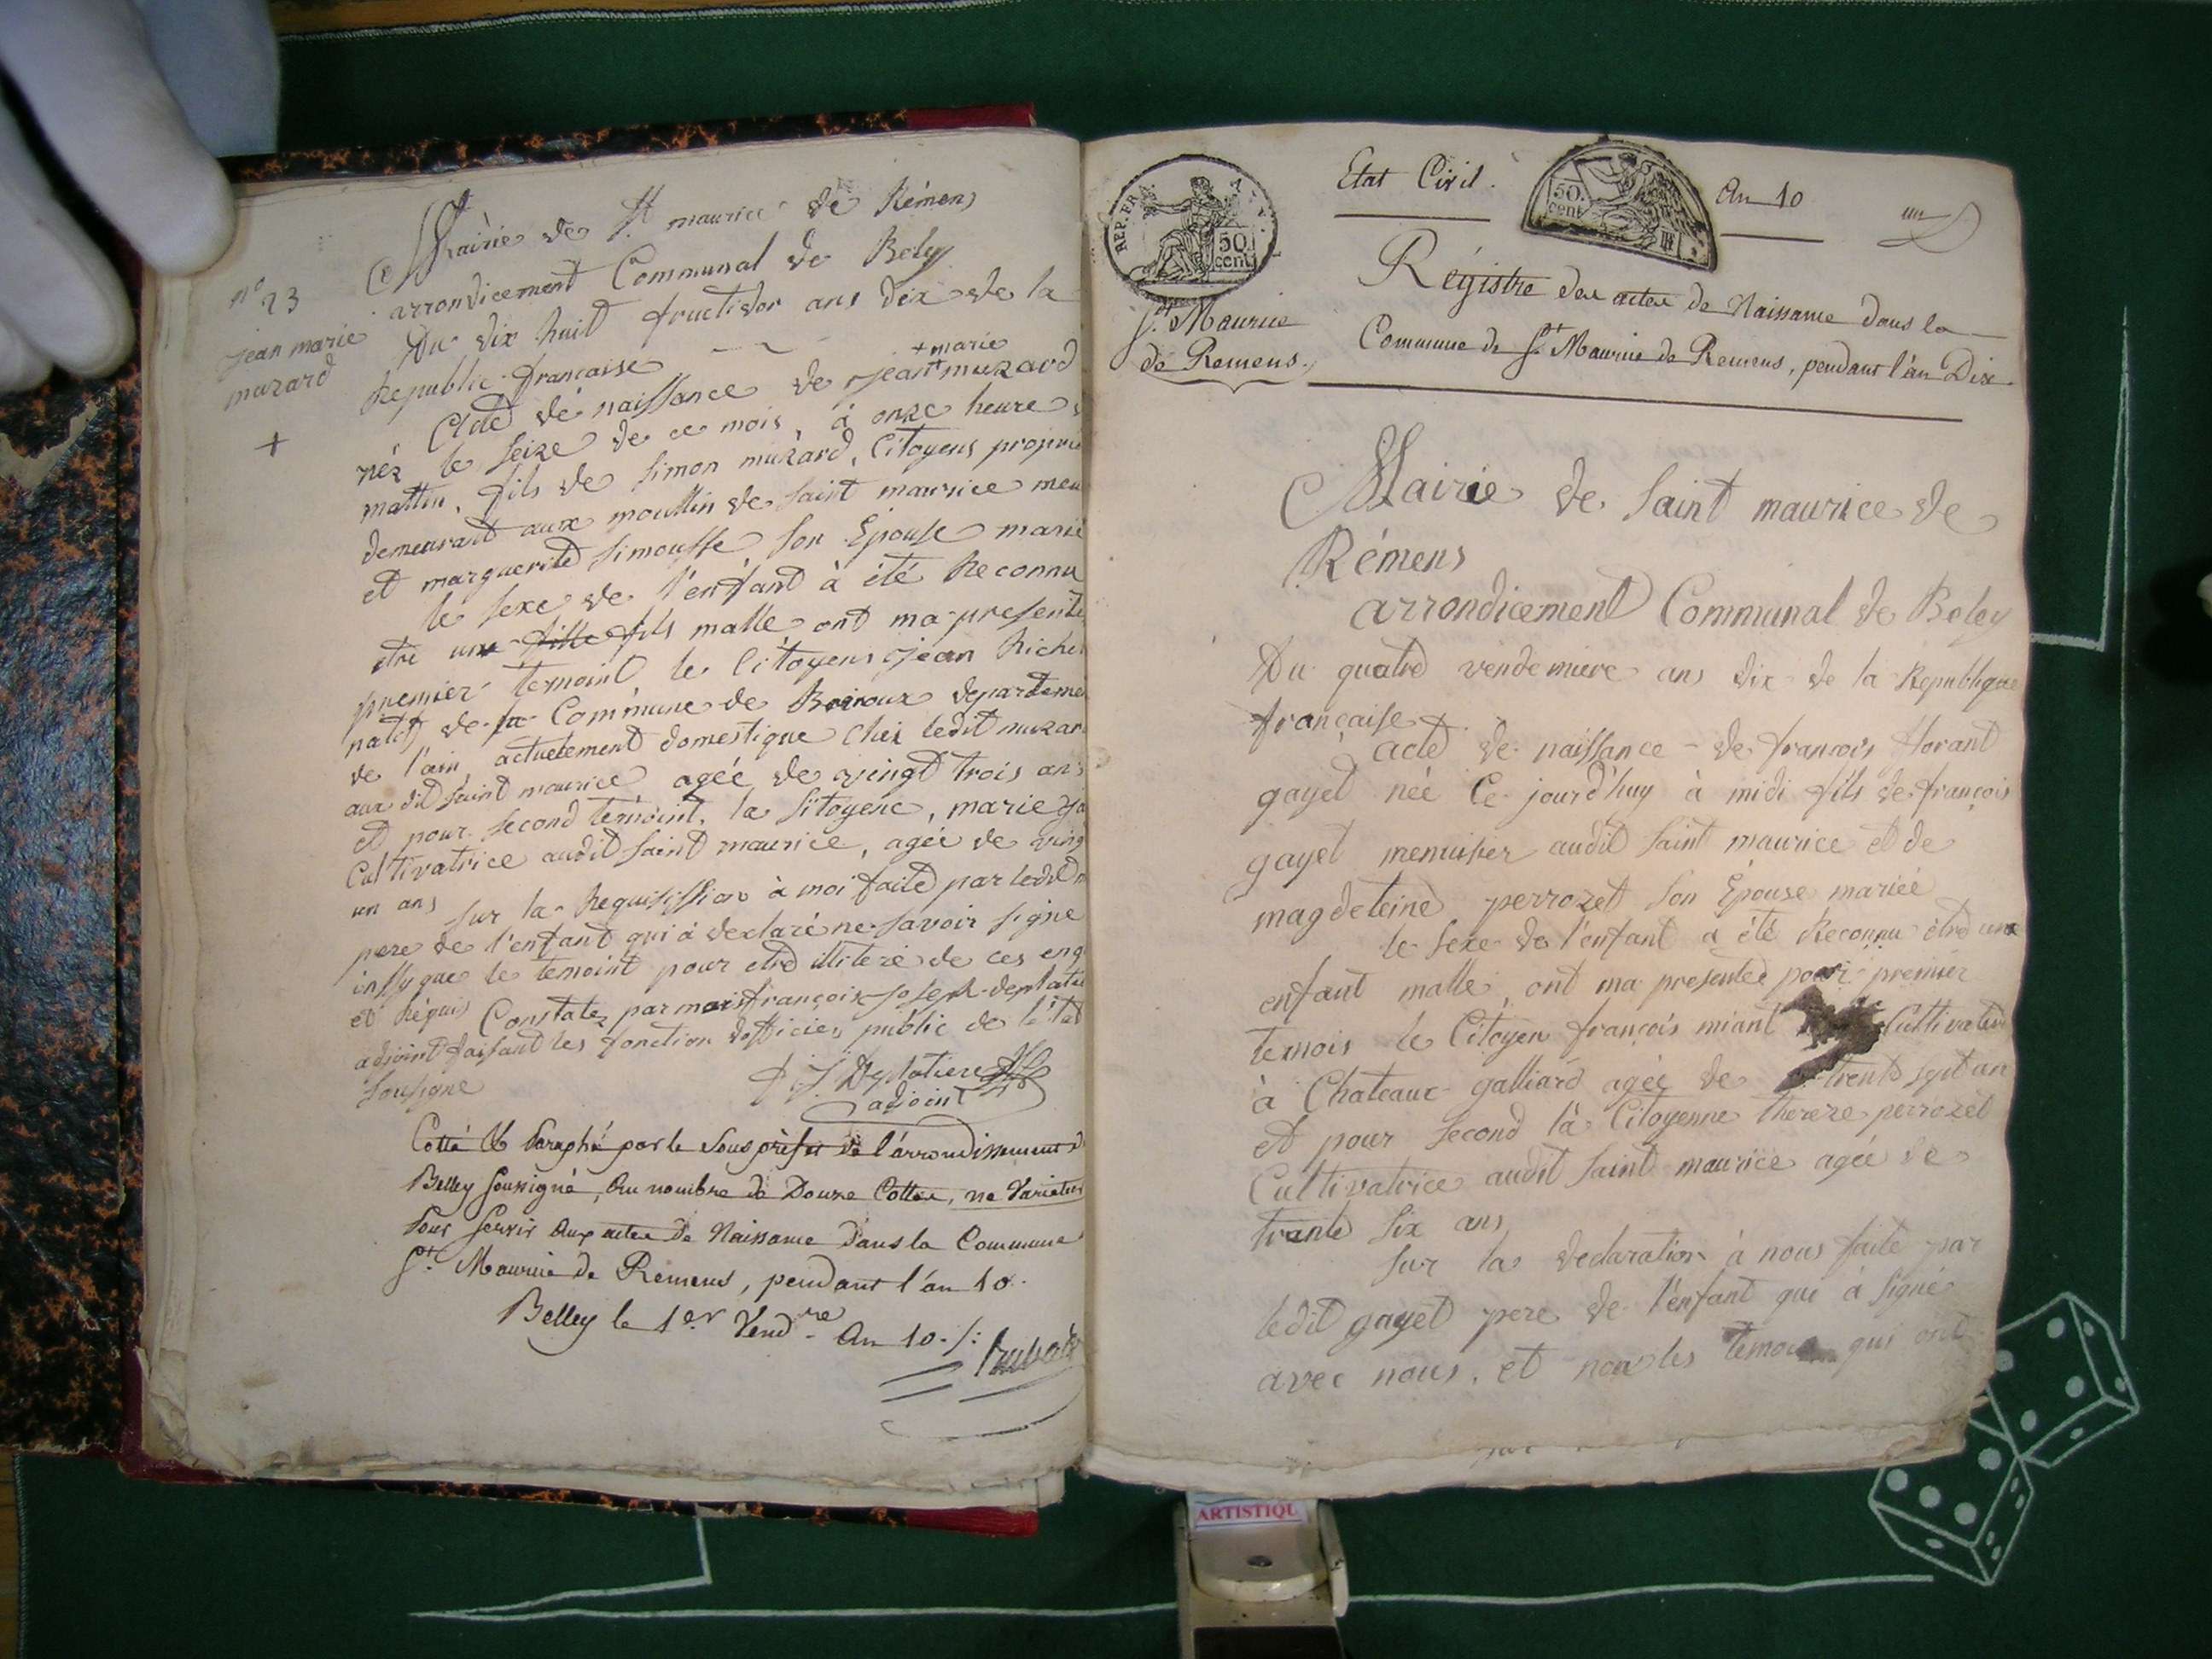 Mairie de St maurice de Rémens
arrondicement Communal de Beley
n° 23
jean marie
muzard
+
Du dix huit fructidor ans dix de la
Republic francaise
+ marie
Acte de naissance de jean + muzard
néz le seize de ce mois, à onze heure
mattin, fils de simon muzard, Citoyens propri
demeurant aux moullin de saint maurice
et marguerite simousse son Epouse marié
le sexe de l'enfant à été Reconnu
etre une fille fils malle ont ma presenté
premier temoint le Citoyens jean Riche
natif de la Commune de departeme
de l'ain actuelement domestique chez ledit muzar
aux dit saint maurice agéé de vingt trois ans
et pour second témoint, la Sitoyene, marie
Cultivatrice audit saint maurice, agéé de ving
un ans
sur la Requisission à moi faite par ledit
pere de l'enfant qui à declaré ne savoir signe
inssy que le temoint pour etre illiteré de ces enq
et Réquis
Constatez par moi françois joseph deplati
adjoint faisant les fonction dofficier public de létat
Sousigne
f. j. Deplatiere
adjoint
Cotté & Paraphé par le Sous préfet de l'arrondissement d
Belley soussigné, au nombre de Douze Cottes, ne Varietur
Pour servir aux actes de Naissance dans la Commune
St. Maurice de Remens, pendant l'an 10.
Belley le 1er Vendre An 10 ./.
REP. FRA.
50.
cent.
Etat Civil.
50.
cent
An 10
un
St. Maurice
de Remens.
Régistre des actes de Naissance dans la
Commune de St. Maurice de Remens, pendant l'an Dix.
Mairie de saint maurice de
Rémens
arrondicement Communal de Beley
Du quatre vendemiere ans dix de la Republique
française
acte de naissance de francois florant
gayet néé Ce jourd'huy à midi fils de françois
gayet menuisier audit saint maurice et de
magdeleine perrozet son Epouse mariéé
le sexe de l'enfant a été Reconnu être une
enfant malle, ont ma presentée pour premier
temois le Citoyen françois miant Cultivateur
à Chateaux galliard agéé de trente sept an
et pour second la Citoyenne thereze perrozet
Cultivatrice audit saint maurice agéé de
trante six ans
sur la declaration à nous faite par
ledit gayet pere de l'enfant qui à signé
avec nous, et non les temoin qui ont
ARTISTIQU